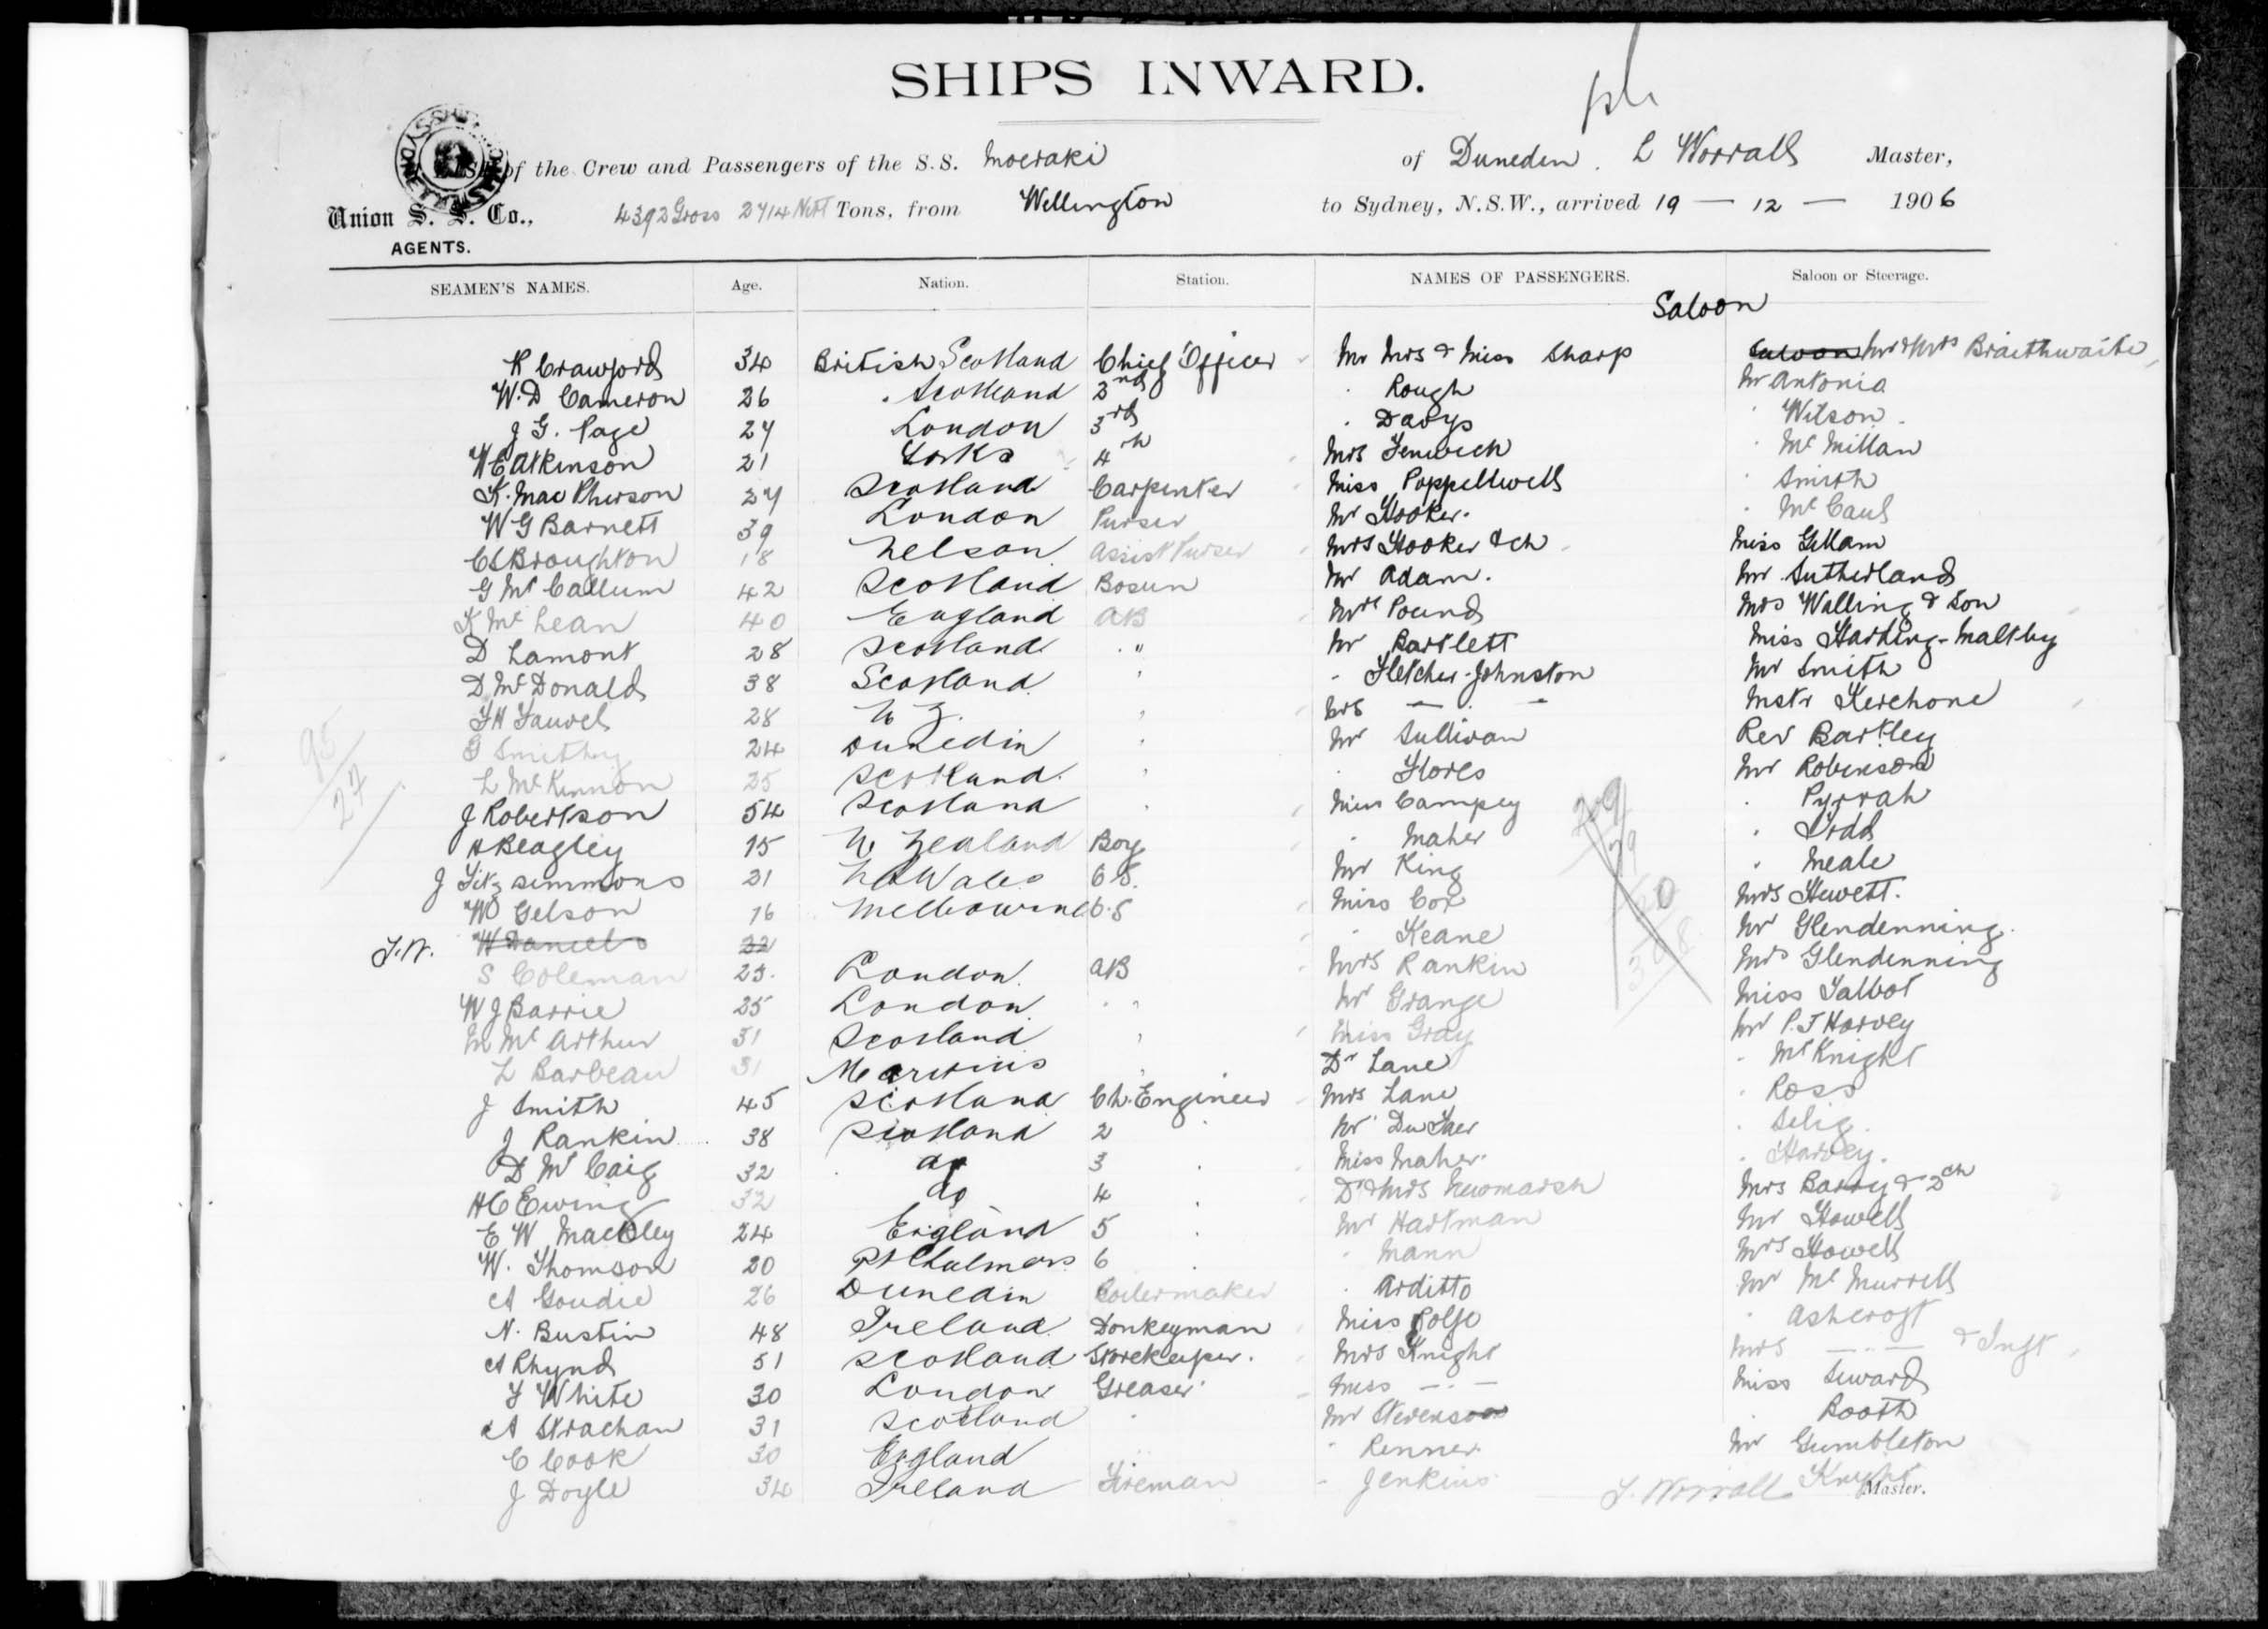 SHIPS INWARD.
of the Crew and Passengers of the S.S. Moeraki of Duneden. L Worrall Master,
Union S. S. Co., 4392 Gross 2714 Nett Tons, from Wellington to Sydney, N.S.W., arrived 19 — 12 — 1906
AGENTS.
SEAMEN'S NAMES. Age. Nation. Station. NAMES OF PASSENGERS. Saloon or Steerage.
Saloon
R Crawford 34 British Scotland Chief Officer Mr Mrs & Miss Sharp Saloon Mr & Mrs Braithwaite
W.D Cameron 26 Scotland 2nd Rough Mr Antonia
J G. Page 27 London 3rd Davys Wilson
W E Atkinson 21 Yorks 4th Mrs Fenwick McMillan
K. MacPherson 27 Scotland Carpenter Miss Poppellwell Smith
W G Barnett 39 London Purser Mr Hooker. McCaul
C L Broughton 18 Nelson Assist Purser Mrs Hooker & ch Miss Gillam
G McCallum 42 Scotland Bosun Mr Adam. Mr Sutherland
K McLean 40 England AB Mrs Pound Mrs Walling & Son
D Lamont 28 Scotland " Mr Bartlett Miss Harding-Maltby
D McDonald 38 Scotland Fletcher-Johnston Mr Smith
F H Fauvel 28 N Z. Mrs — — Mstr Kerchone
G Smithy 24 Dunedin Mr Sullivan Rev Bartley
L McKinnon 25 Scotland Flores Mr Robinson
J Robertson 54 Scotland Miss Campey Pyrrah
A Beagley 15 N Zealand Boy Maher Todd
J Fitzsimmons 21 N S Wales O S. Mr King Meale
W Gelson 16 Melbourne O.S Miss Cox Mrs Hewett.
J.W. W Daniels 22 Keane Mr Glendenning
S Coleman 25. London AB Mrs Rankin Mrs Glendenning
W J Barrie 25 London Mr Grange Miss Talbot
M McArthur 31 Scotland Miss Gray Mr P. J Harvey
L Barbeau 31 Dr Lane McKnight
J Smith 45 Scotland Ch. Engineer Mrs Lane Ross
J Rankin 38 Scotland 2 Mr Selig
D McCaig 32 do 3 Miss Maher Harvey.
H C Ewing 32 do 4 Dr & Mrs Newmarsh Mrs Barry & 2 ch
E W Mackley 24 England 5 Mr Hartman Mr Howell
W. Thomson 20 Pt Chalmers 6 Mann Mrs Howell
A Goudie 26 Dunedin Boilermaker Arditto Mr McMurrell
N. Bustin 48 Ireland Donkeyman Miss Rolfe Ashcroft
A Rhynd 51 Scotland Storekeeper. Mrs Knight Mrs — — & Inft
F White 30 London Greaser Miss — — Miss Seward
A Strachan 31 Scotland Mr Stevenson Booth
C Cook 30 England Renner Mr Gumbleton
J Doyle 34 Ireland Fireman Jenkins Knight
L. Worrall Master.
95
27